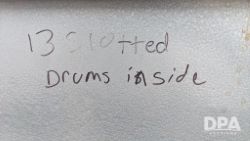 13 Slotted
Drums inside
DPA
AUCTIONS